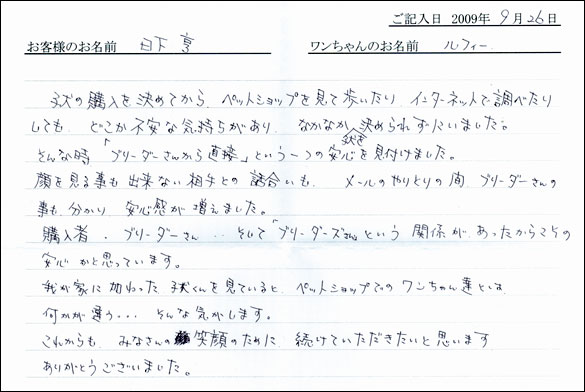 ご記入日 2009年 9月26日
お客様のお名前 日下 亨 ワンちゃんのお名前 ルフィー
子犬の購入を決めてから、ペットショップを見て歩いたり インターネットで調べたり
しても、どこか不安な気持ちがあり、なかなか決められずにいました。
そんな時「ブリーダーさんから直接」という一つの安心を見付けました。
顔を見る事も出来ない相手との話合いも、メールのやりとりの間、ブリーダーさんの
事も分かり 安心感が増えました。
購入者、ブリーダーさん‥そして「ブリーダーズさん」という関係があったからこその
安心かと思っています。
我が家に加わった子犬くんを見ていると、ペットショップでのワンちゃん達とは
何かが違う‥‥そんな気がします。
これからも、みなさんの笑顔のために 続けていただきたいと思います
ありがとうございました。